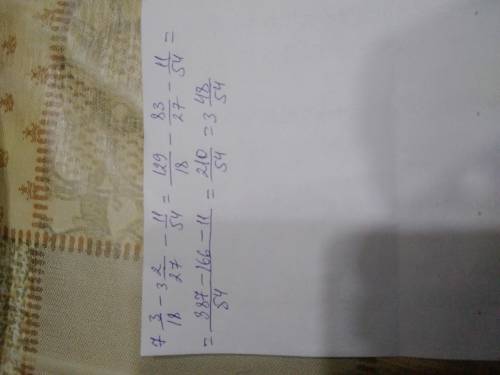 7 3/18 - 3 2/27 - 11/54 = 129/18 - 83/27 - 11/54 =
= (387 - 166 - 11)/54 = 210/54 = 3 48/54